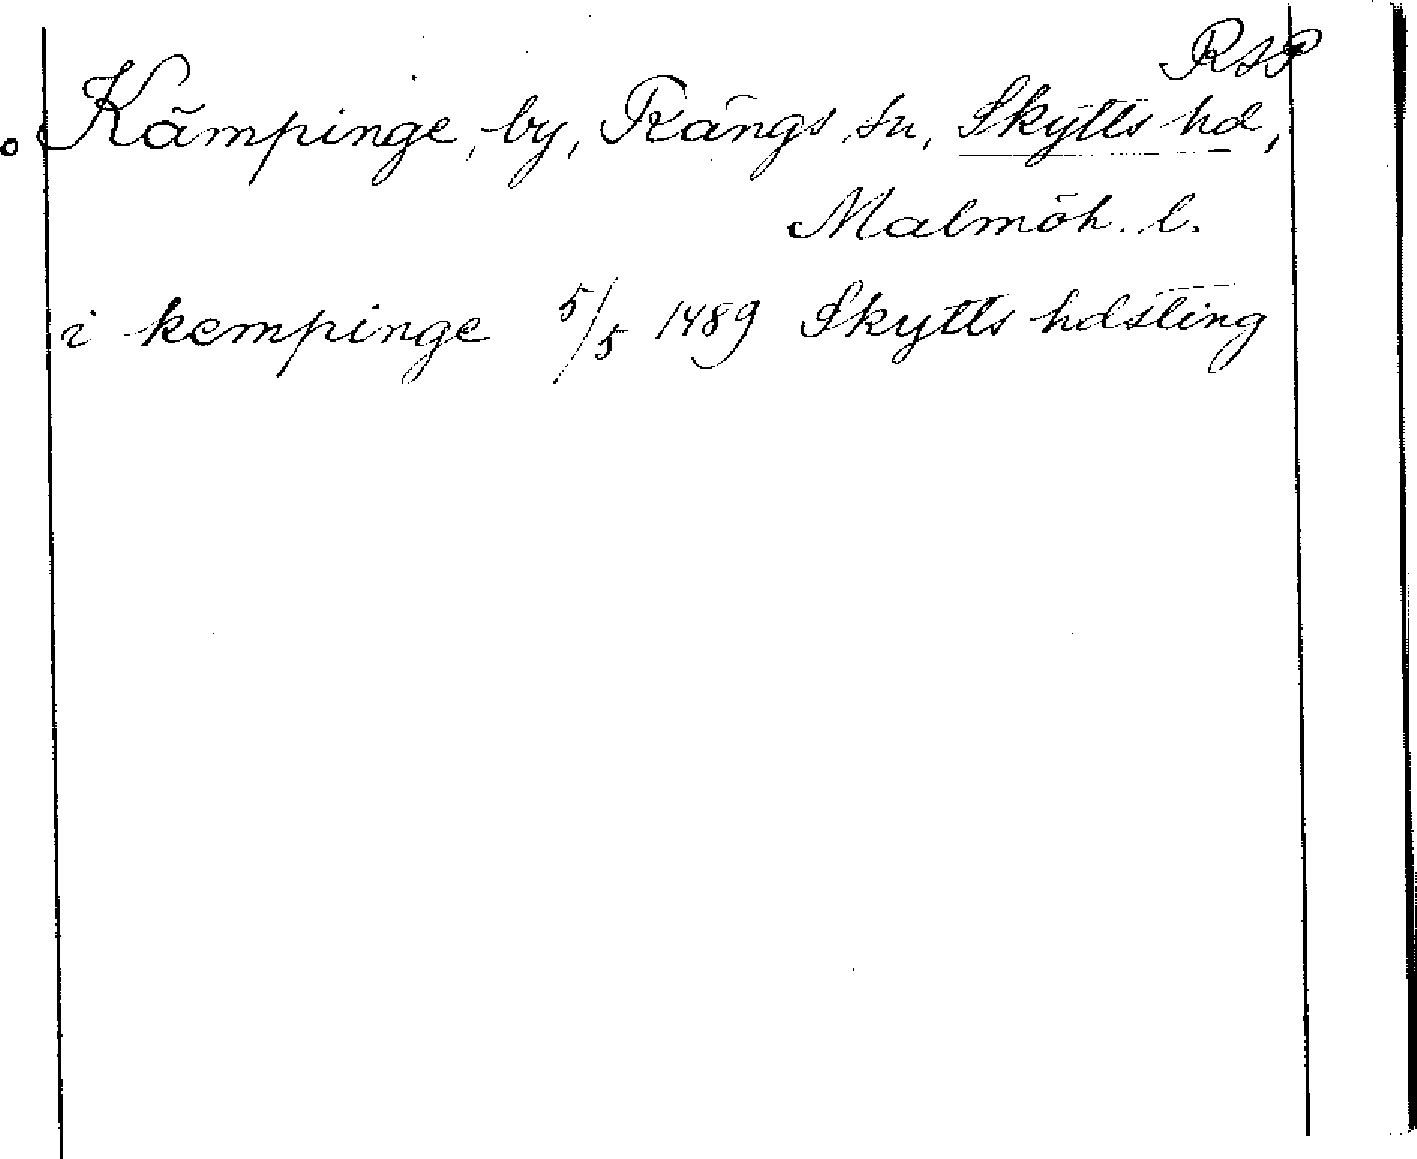 RSP
Kämpinge, by, Rängs sn, Skytts hd,
Malmöh. l.
i kempinge 5/5 1489 Skytts hdsting